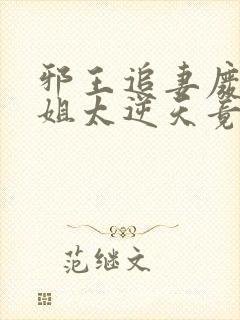 邪王追妻废
姐太逆天竟
范继文